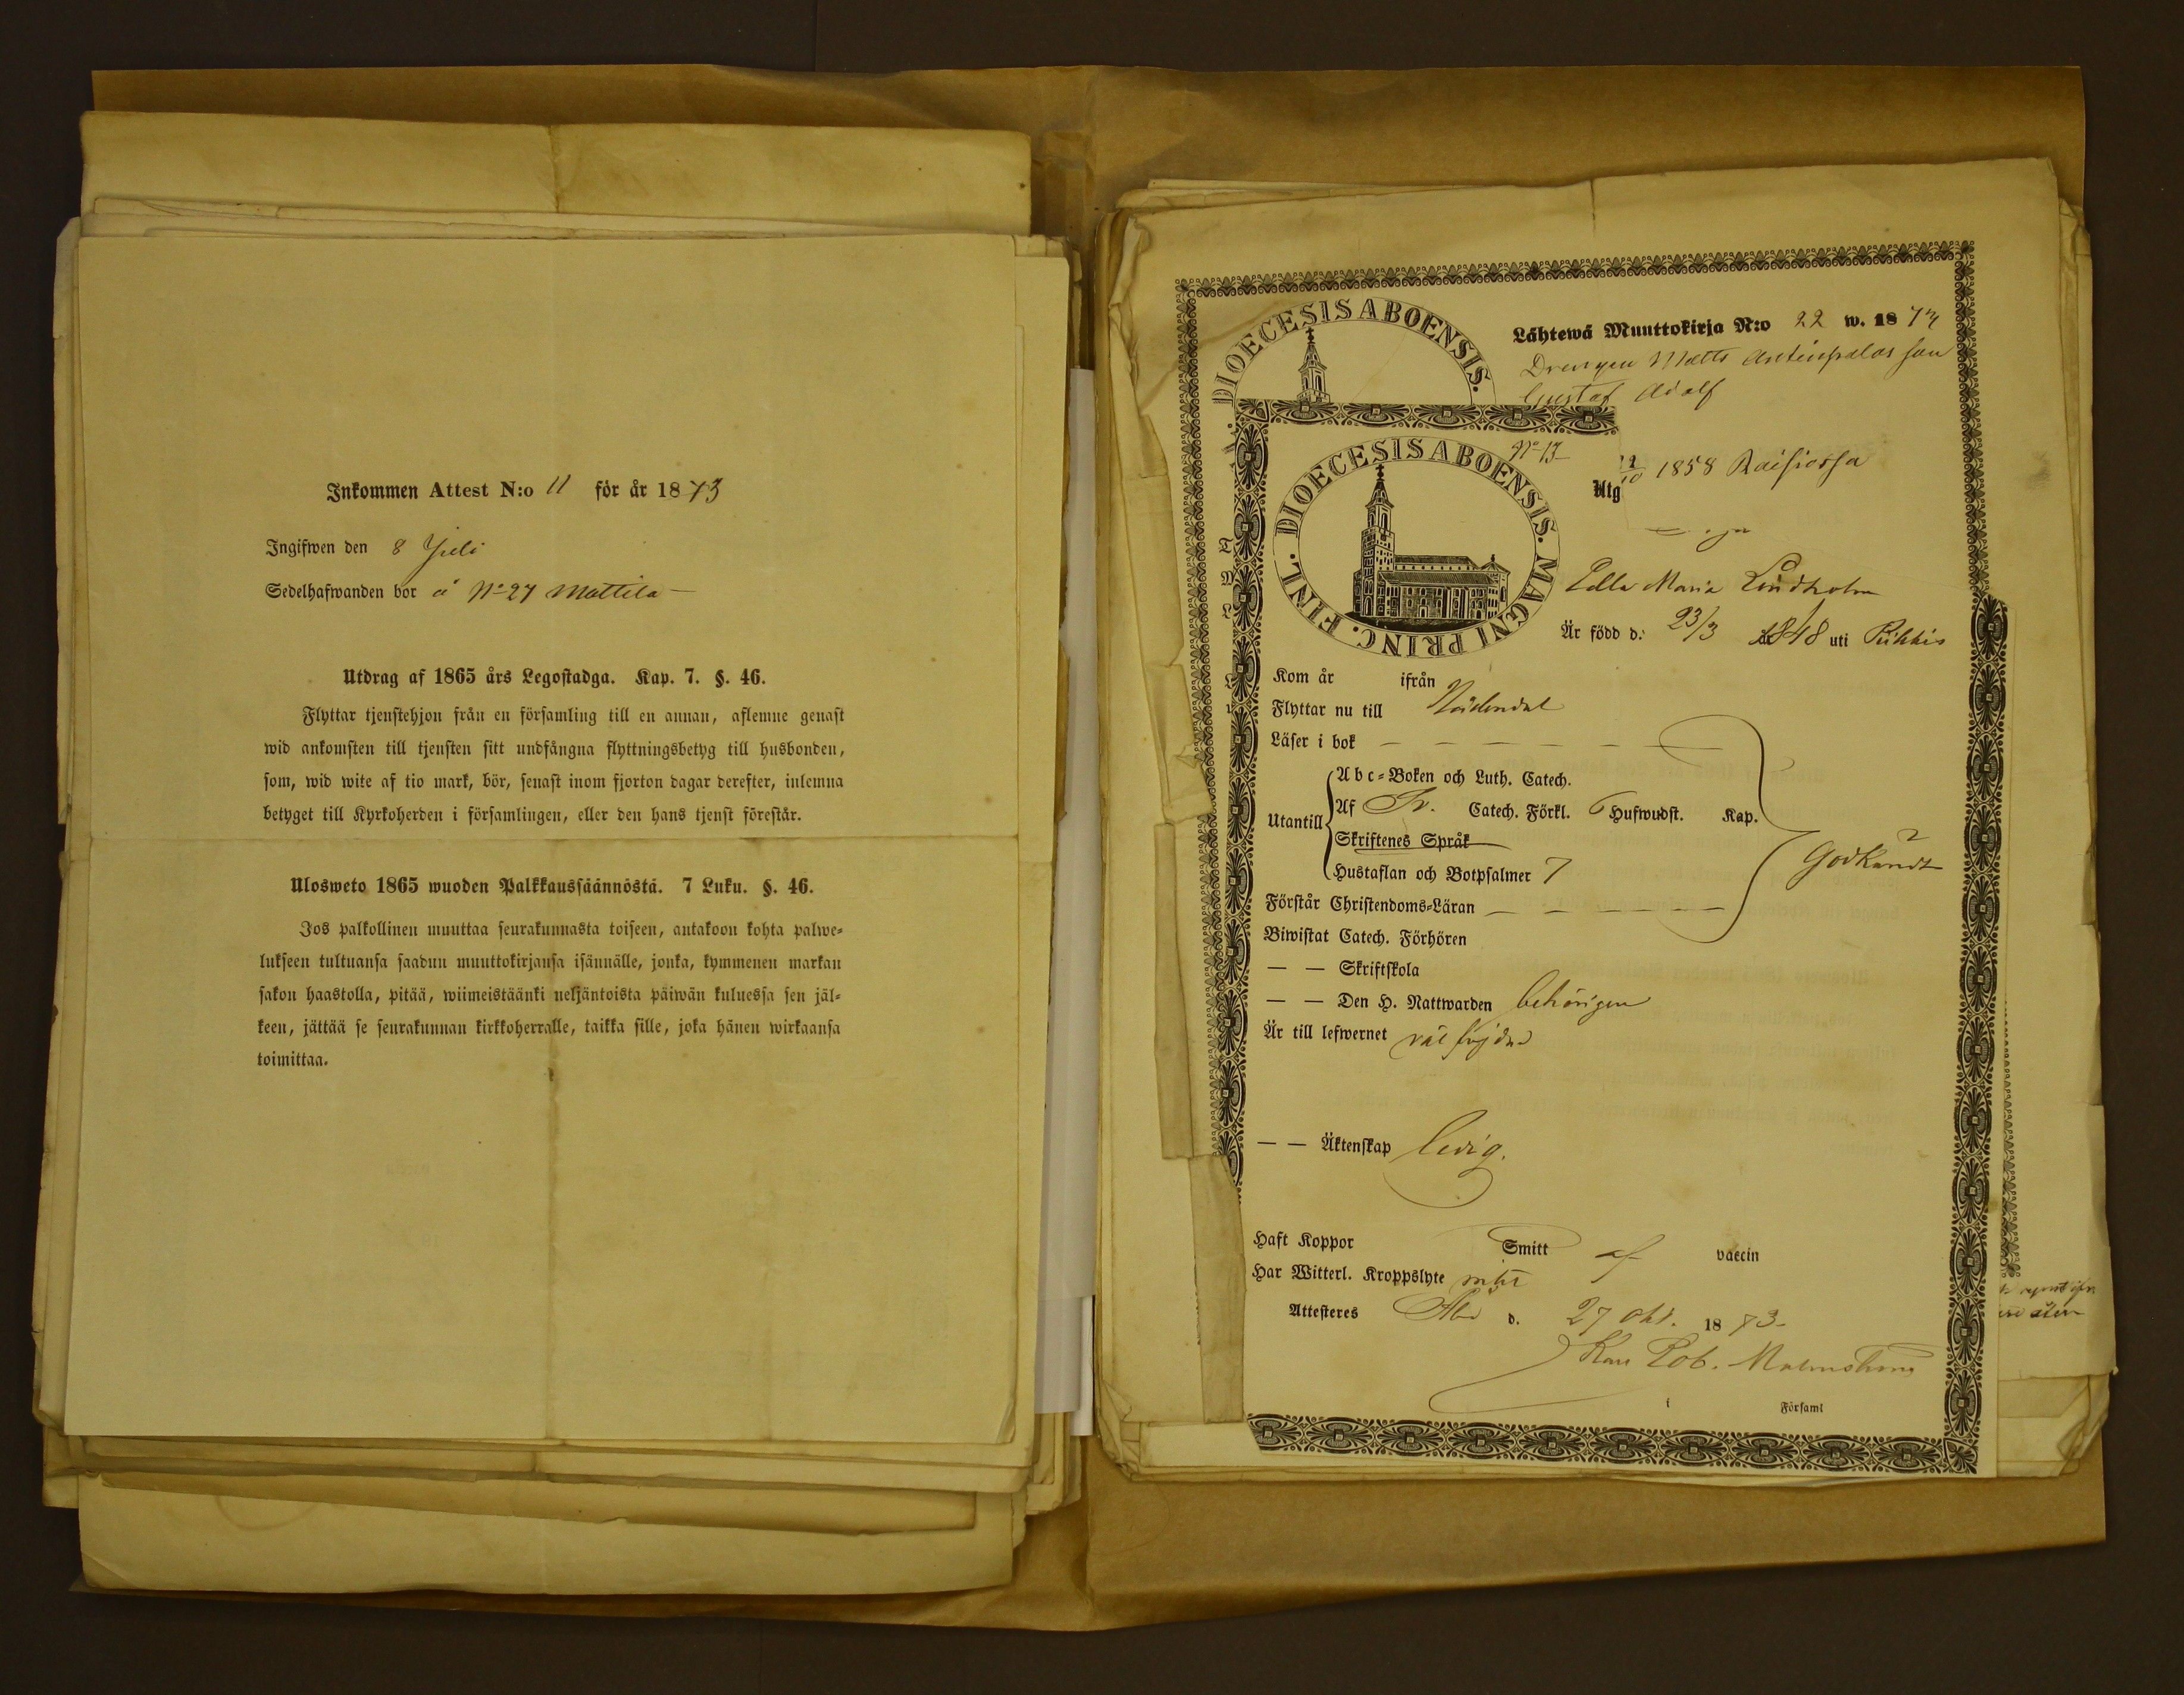 Inkommen Attest N:o 11 för år 1873
Ingifwen den 8 Juli
Sedelhafwanden bor å No 27 Mattila
Utdrag af 1865 års Legostadga. Kap. 7. §. 46.
Flyttar tjenstehjon från en församling till en annan, aflemne genast
wid ankomsten till tjensten sitt undfångna flyttningsbetyg till husbonden,
som, wid wite af tio mark, bör, senast inom fjorton dagar derefter, inlemna
betyget till Kyrkoherden i församlingen, eller den hans tjenst förestår.
Ulosweto 1865 wuoden Palkkaussäännöstä. 7 Luku. §. 46.
Jos palkollinen muuttaa seurakunnasta toiseen, antakoon kohta palwe-
lukseen tultuansa saadun muuttokirjansa isännälle, jonka, kymmenen markan
sakon haastolla, pitää, wiimeistäänki neljäntoista päiwän kuluessa sen jäl-
keen, jättää se seurakunnan kirkkoherralle, taikka sille, joka hänen wirkaansa
toimittaa.
DIOECESIS ABOENSIS.
Lähtewä Muuttokirja N:o 22 w. 1873
Drengen Matts son
Gustaf Adolf
No 13
1858 Raisiossa
Utg
DIOECESIS ABOENSIS. MAGNI PRINC. FINL.
Maria Lindholm
Är född d. 23/3 1848 uti Pikkis
Kom år ifrån
Flyttar nu till Nådendal
Läser i bok
Abc-Boken och Luth. Catech.
Utantill Af Sv. Catech. Förkl. 6 Hufwudst. Kap.
Skriftenes Språk
Godkändt
Hustaflan och Botpsalmer 7
Förstår Christendoms-Läran
Biwistat Catech. Förhören
— — Skriftskola
— — Den H. Nattwarden behörigen
Är till lefwernet väl
— — Äktenskap ledig.
Haft Koppor Smitt af vaccin
Har Witterl. Kroppslyte
Attesteres Åbo d. 27 Okt. 1873
Rob. Malmström
i Församl